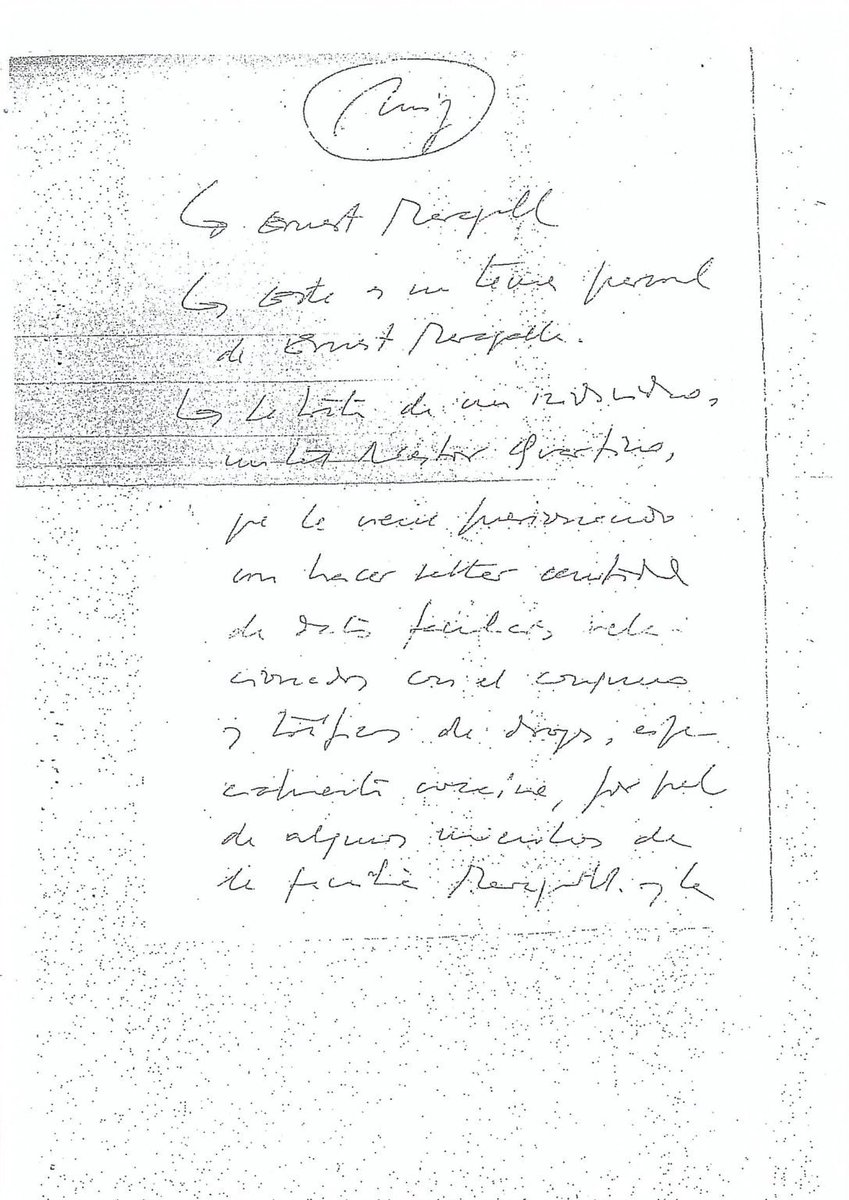 ↳ Ernest Maragall
↳ Este es un tema personal
de Ernest Maragall.
↳ Se trata de un individuo,
un tal Néstor Quartino,
que le viene presionando
con hacer saltar cantidad
de datos familiares rela-
cionados con el consumo
y tráfico de drogas, espe-
cialmente cocaína, por parte
de algunos miembros de
la familia Maragall. y la